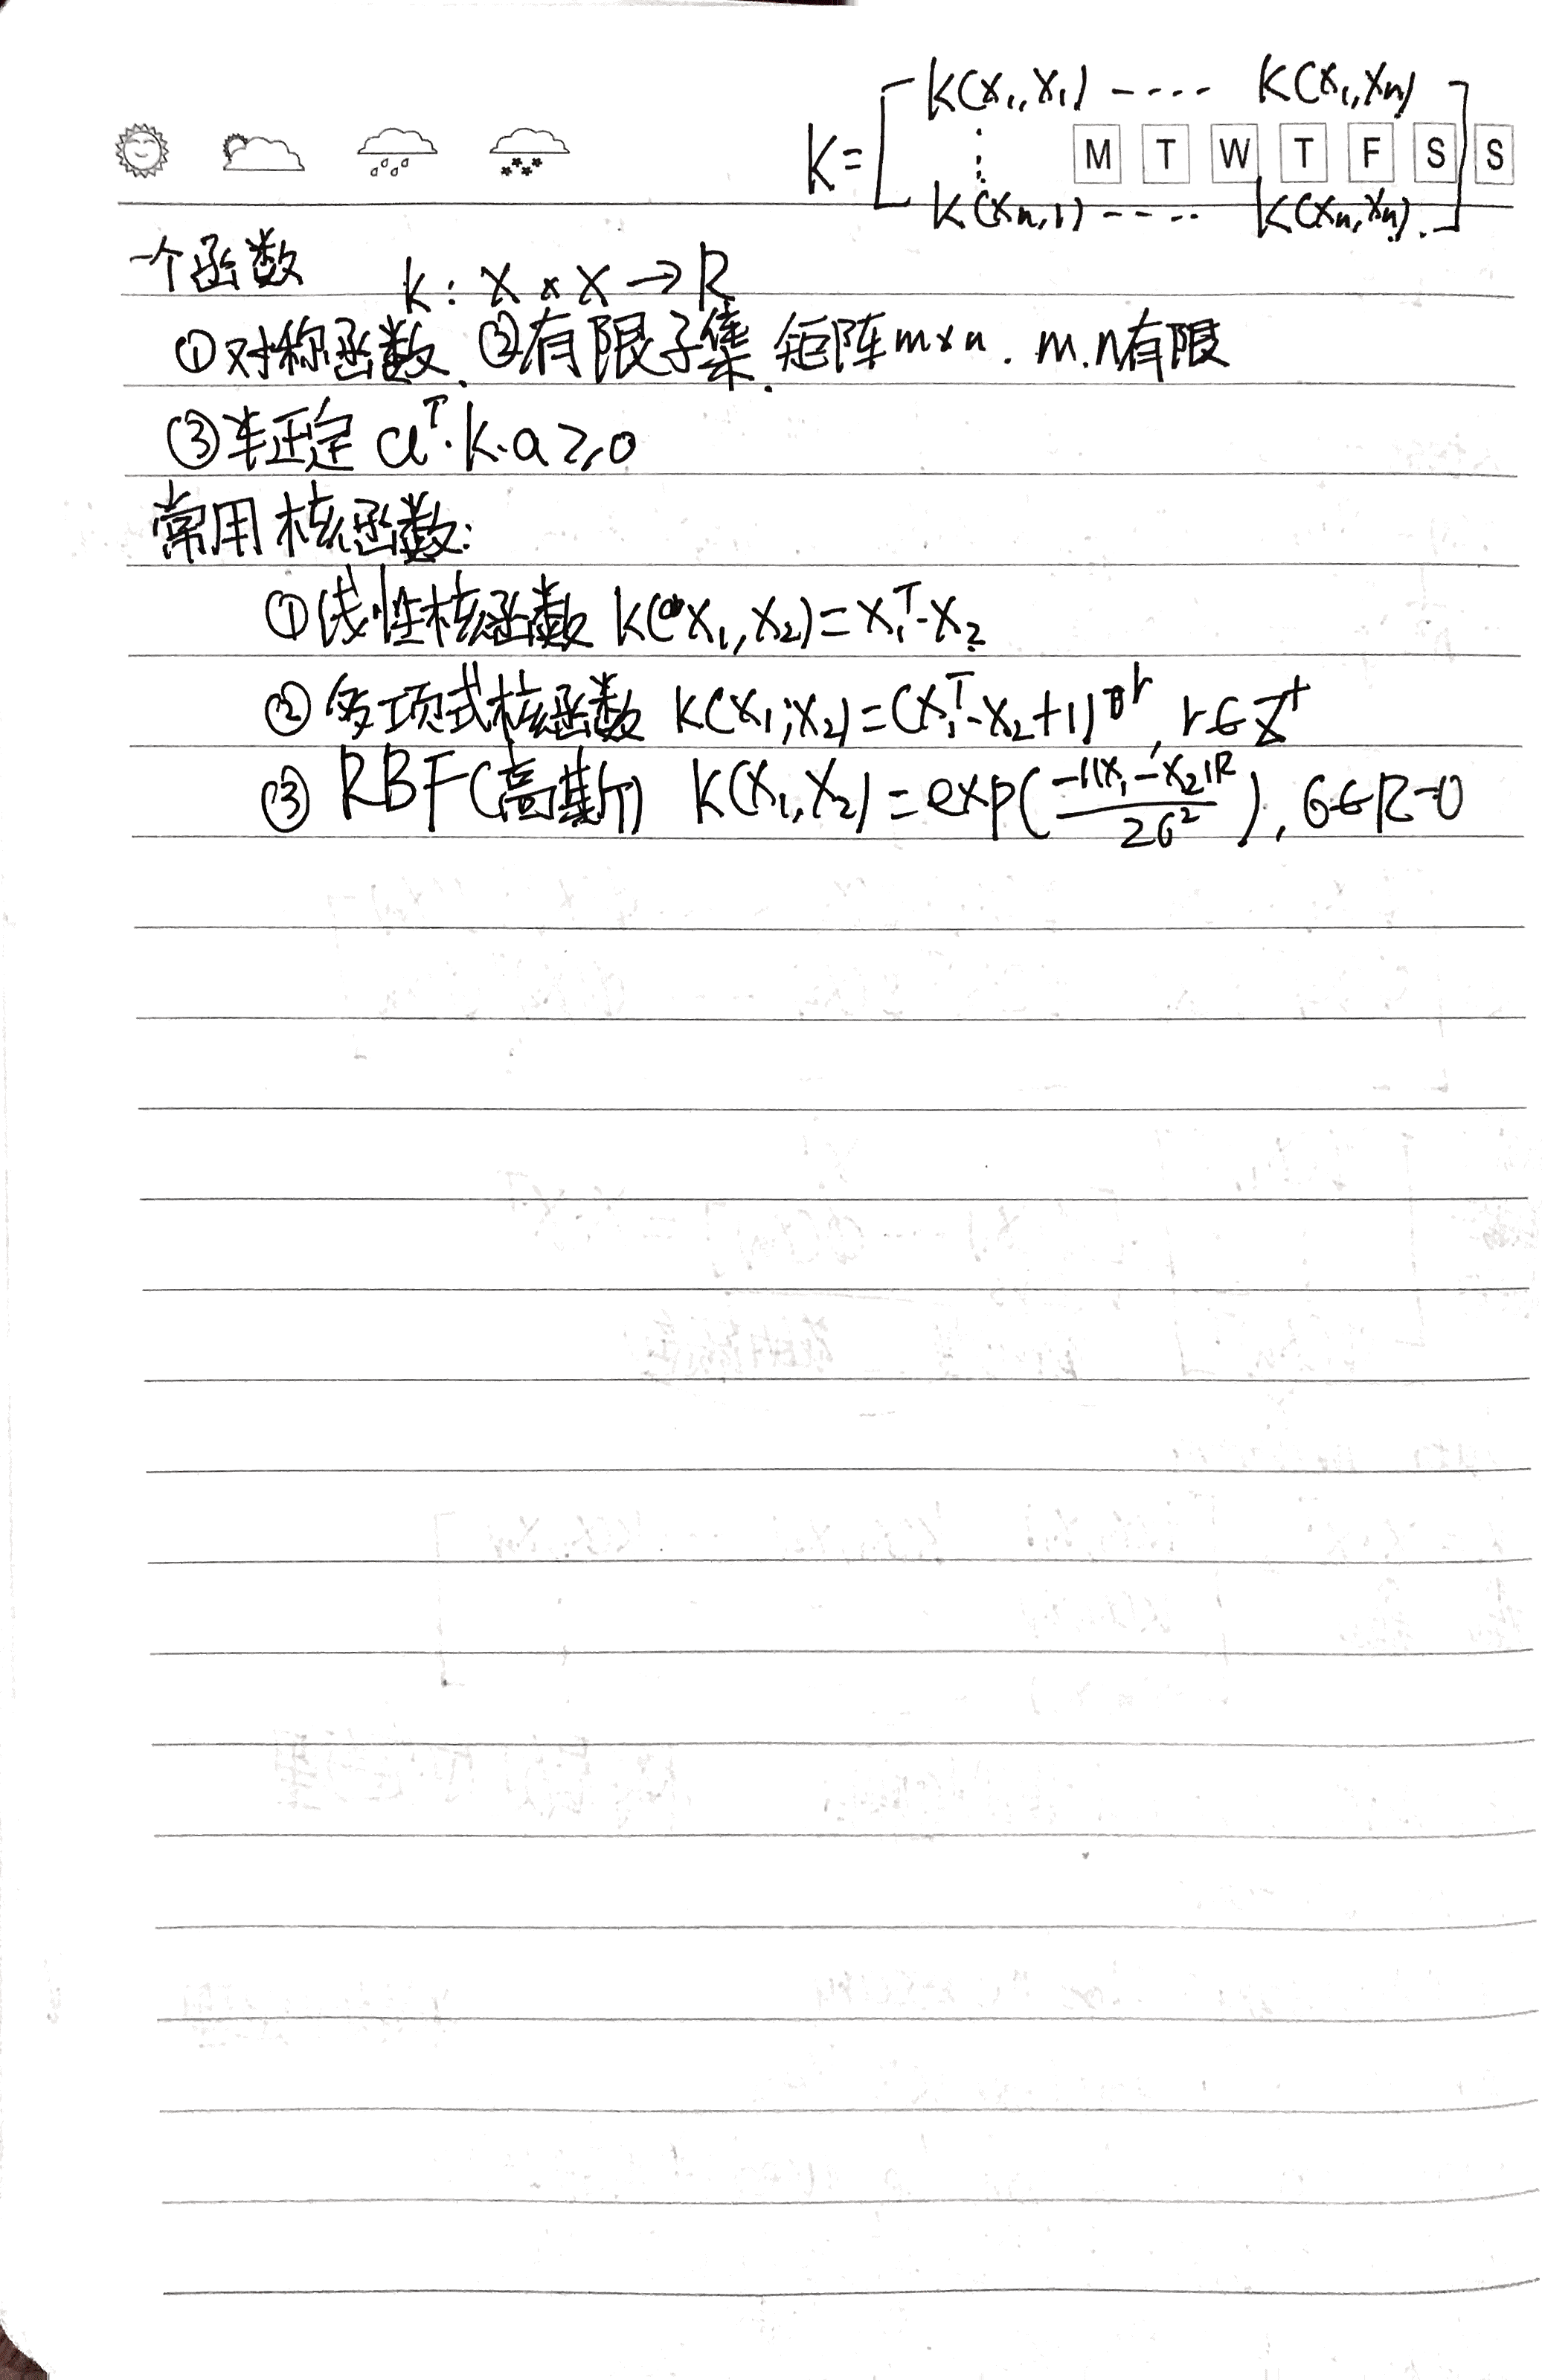 K = [ K(x₁,x₁) ---- K(x₁,xₙ)
⋮ M T W T F S S
K(xₙ,1) ---- K(xₙ,xₙ). ]
一个函数 k : X × X → R
①对称函数、②有限子集. 矩阵m×n. m.n有限
③半正定 aᵀ·k·a ≥ 0
常用核函数:
①线性核函数 K(x₁,x₂)=x₁ᵀ·x₂
②多项式核函数 K(x₁,x₂)=(x₁ᵀ·x₂+1)ʳ, r∈Z⁺
③ RBF(高斯) K(x₁,x₂)=exp(-||x₁-x₂||²/2σ²), σ∈R-0